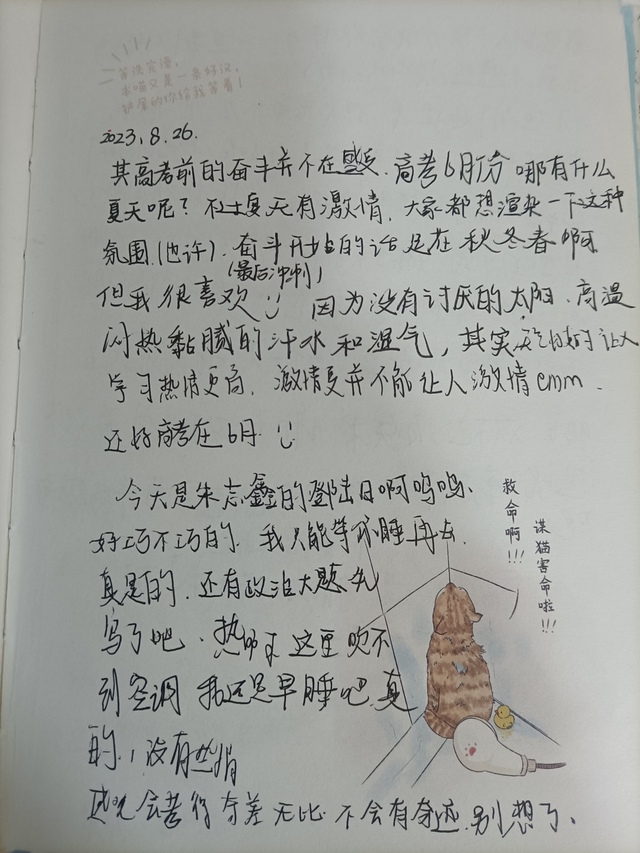 本喵又是一条好汉,
铲屎的你给我等着!
2023.8.26.
其高考前的奋斗并不在盛夏.高考6月份 哪有什么
夏天呢?不过夏天有激情,大家都想渲染一下这种
氛围(也许).奋斗开始的话是在秋冬春啊
(最后冲刺)
但我很喜欢 因为没有讨厌的太阳、高温
闷热黏腻的汗水和湿气,其实 让人
学习热情更高.激情夏并不能让人激情emm.
还好高考在6月
今天是朱志鑫的登陆日啊呜呜、
好巧不巧的、我只能等 睡再去
真是的.还有政治大题先
写了吧、热 这里吹不
到空调 我还是早睡吧.真
的,没有
会考得奇差无比 不会有奇迹.别想了、
救命啊!!!
谋猫害命啦!!!